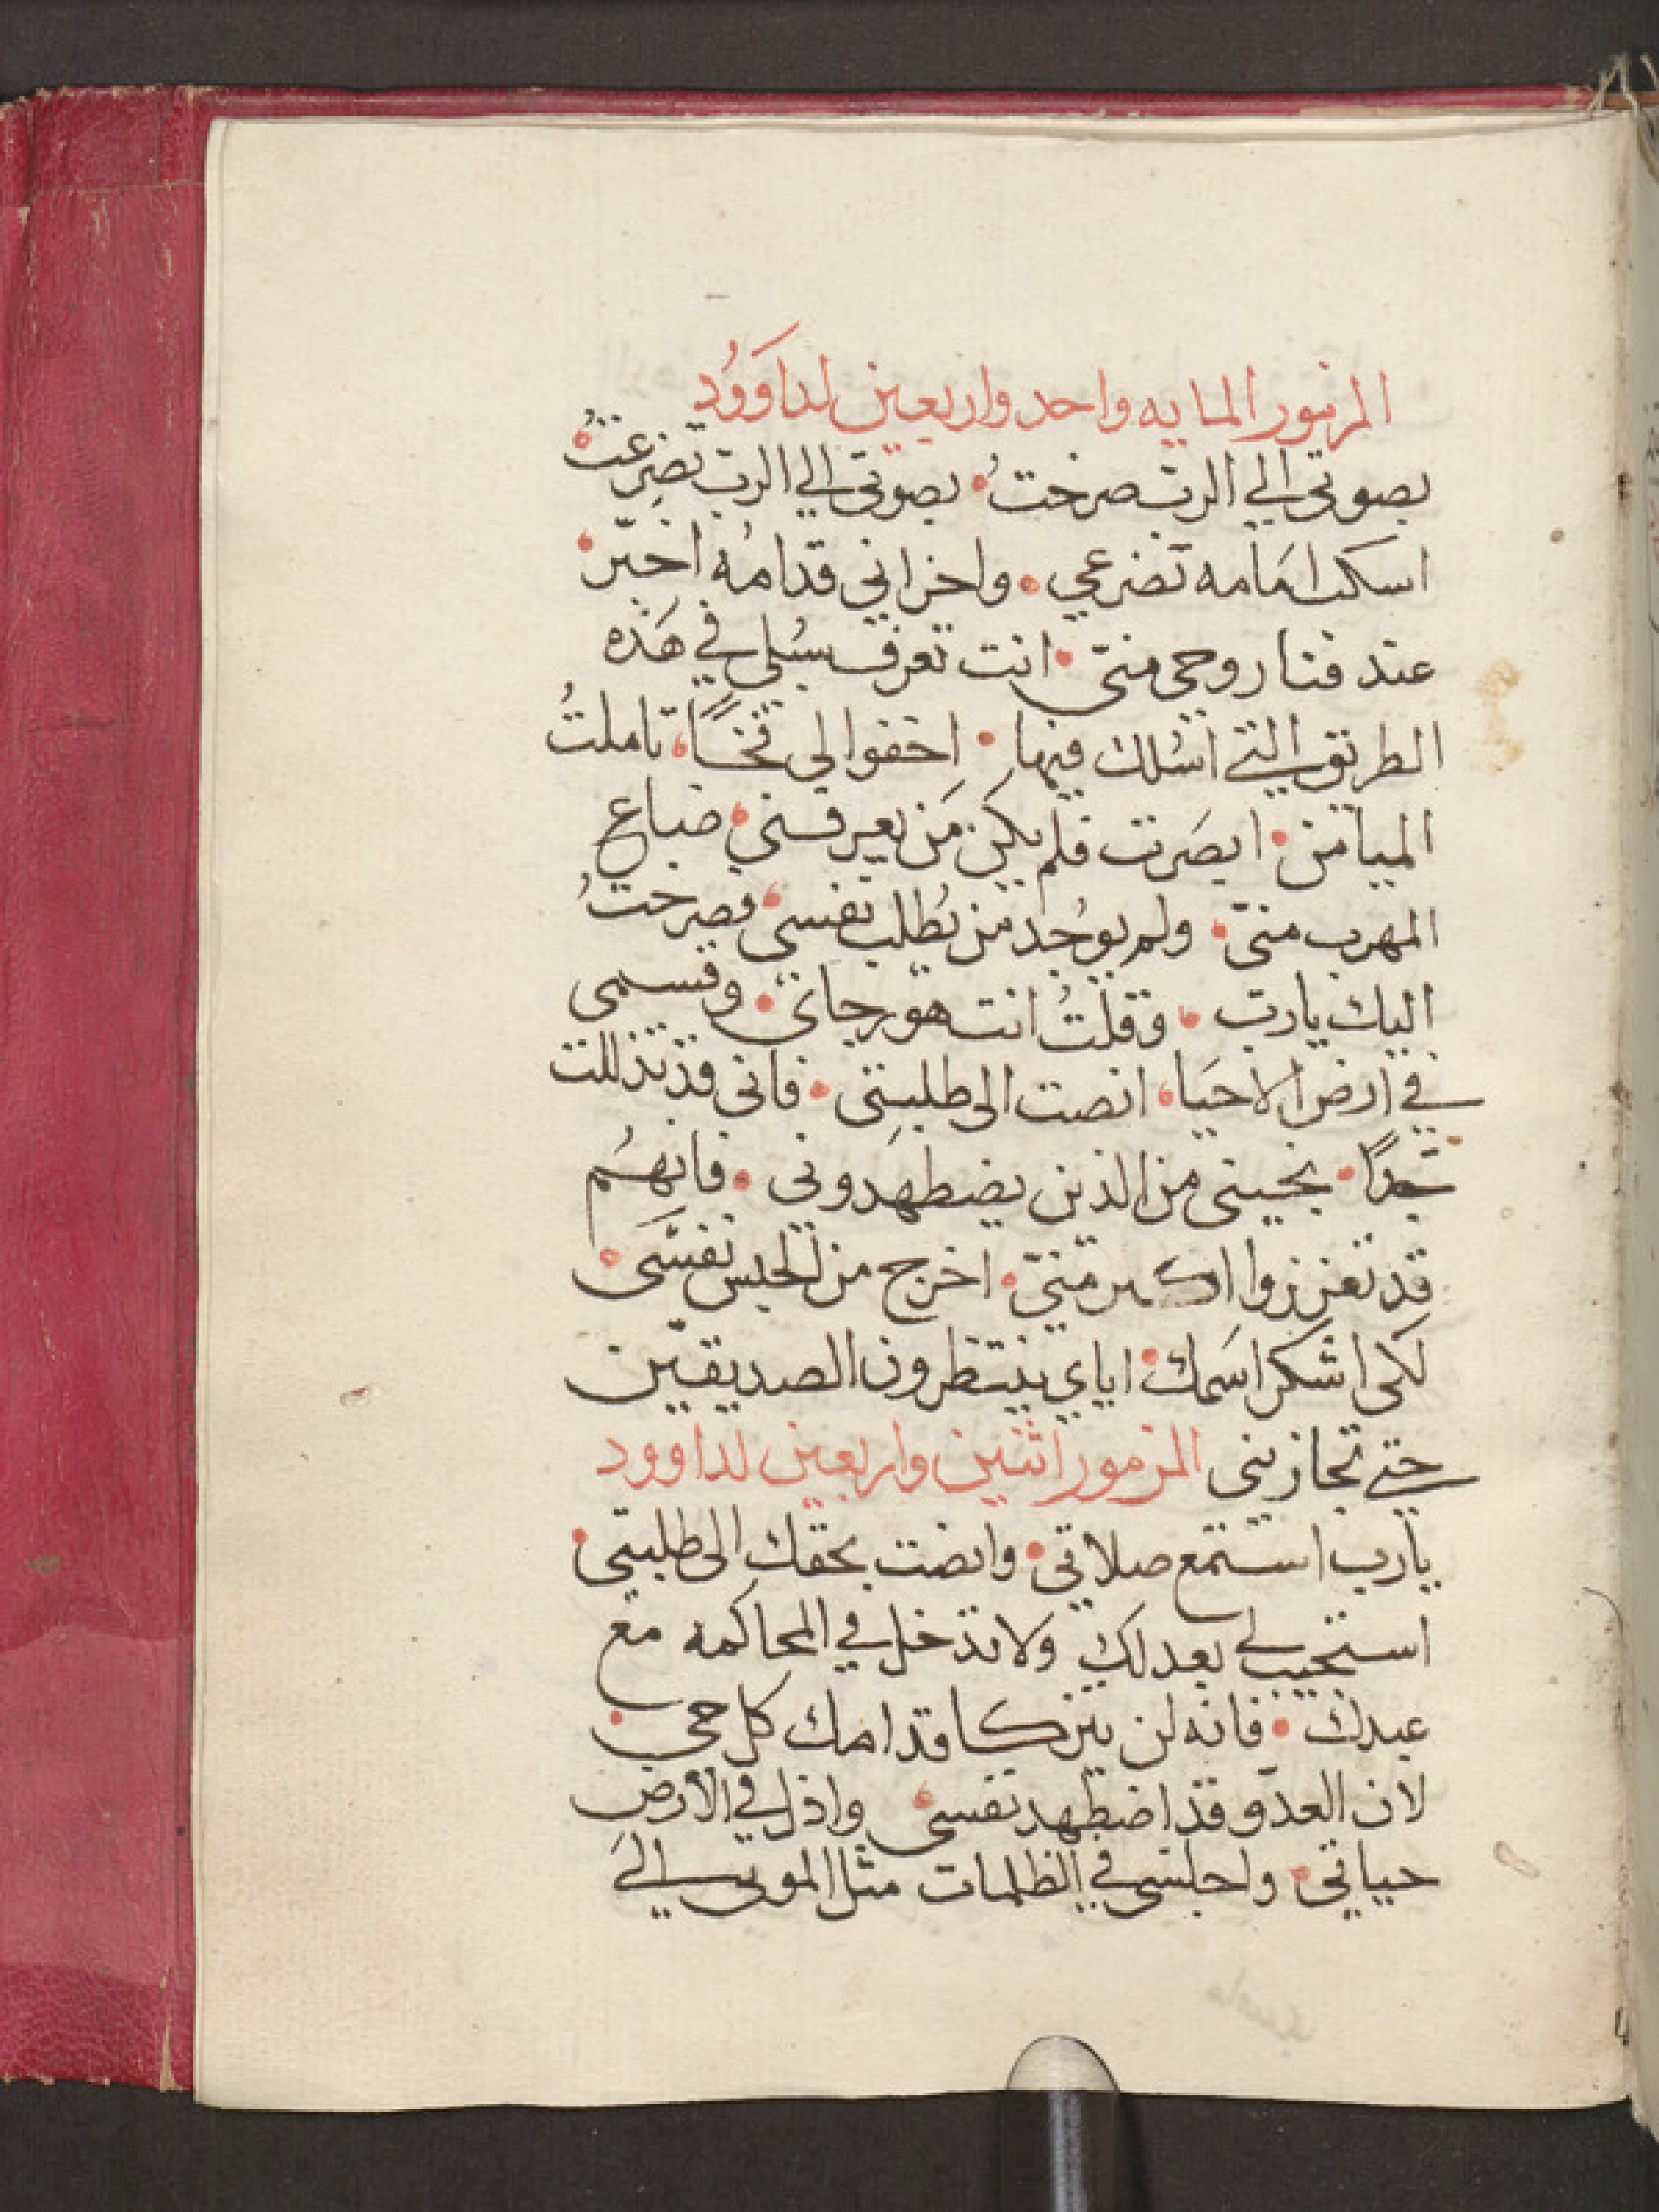 المزمور المايه واحد واربعين لداوود
بصوتي الي الرب صرختُ • بصوتي الي الرب تضرعتُ •
اسكب امامه تضرعي • واحزاني قدامُه اخبّر •
عند فنا روحي منّي • انت تعرف سُبلي في هَذه
الطريق التي اسُلك فيها • اخفوا لي فخاً • تاملتُ
الميامن • ابصَرت فلم يكن مَن يعرفني • ضاع
المهرب منّي • ولم يوُجد من يُطلب نفسي • فصرختُ
اليك يارب • وقلتُ انت هو رجاي • وقسمي
في ارض الاحيَا • انصت الى طلبتي • فاني قد تذللت
جدًا • نجيني من الذين يضطهدوني • فانهُم
قد تعززوا اكثر منّي • اخرج من الحبس نفسَي •
لكي اشكر اسَمك • اياي ينتظرون الصديقيّن
حتي تجازيني المزمور اثنين واربعين لداوود
يارب استمع صلاتي • وانصت بحقك الى طلبتي •
استجيب لي بعدلك ولا تدخل في المحاكمه مع
عبدك • فانه لن يتزكا قدامك كل حي •
لان العدّو قد اضطهد نفسي • واذل في الارض
حياتي • واجلسني في الظلمات مثل الموتي الي